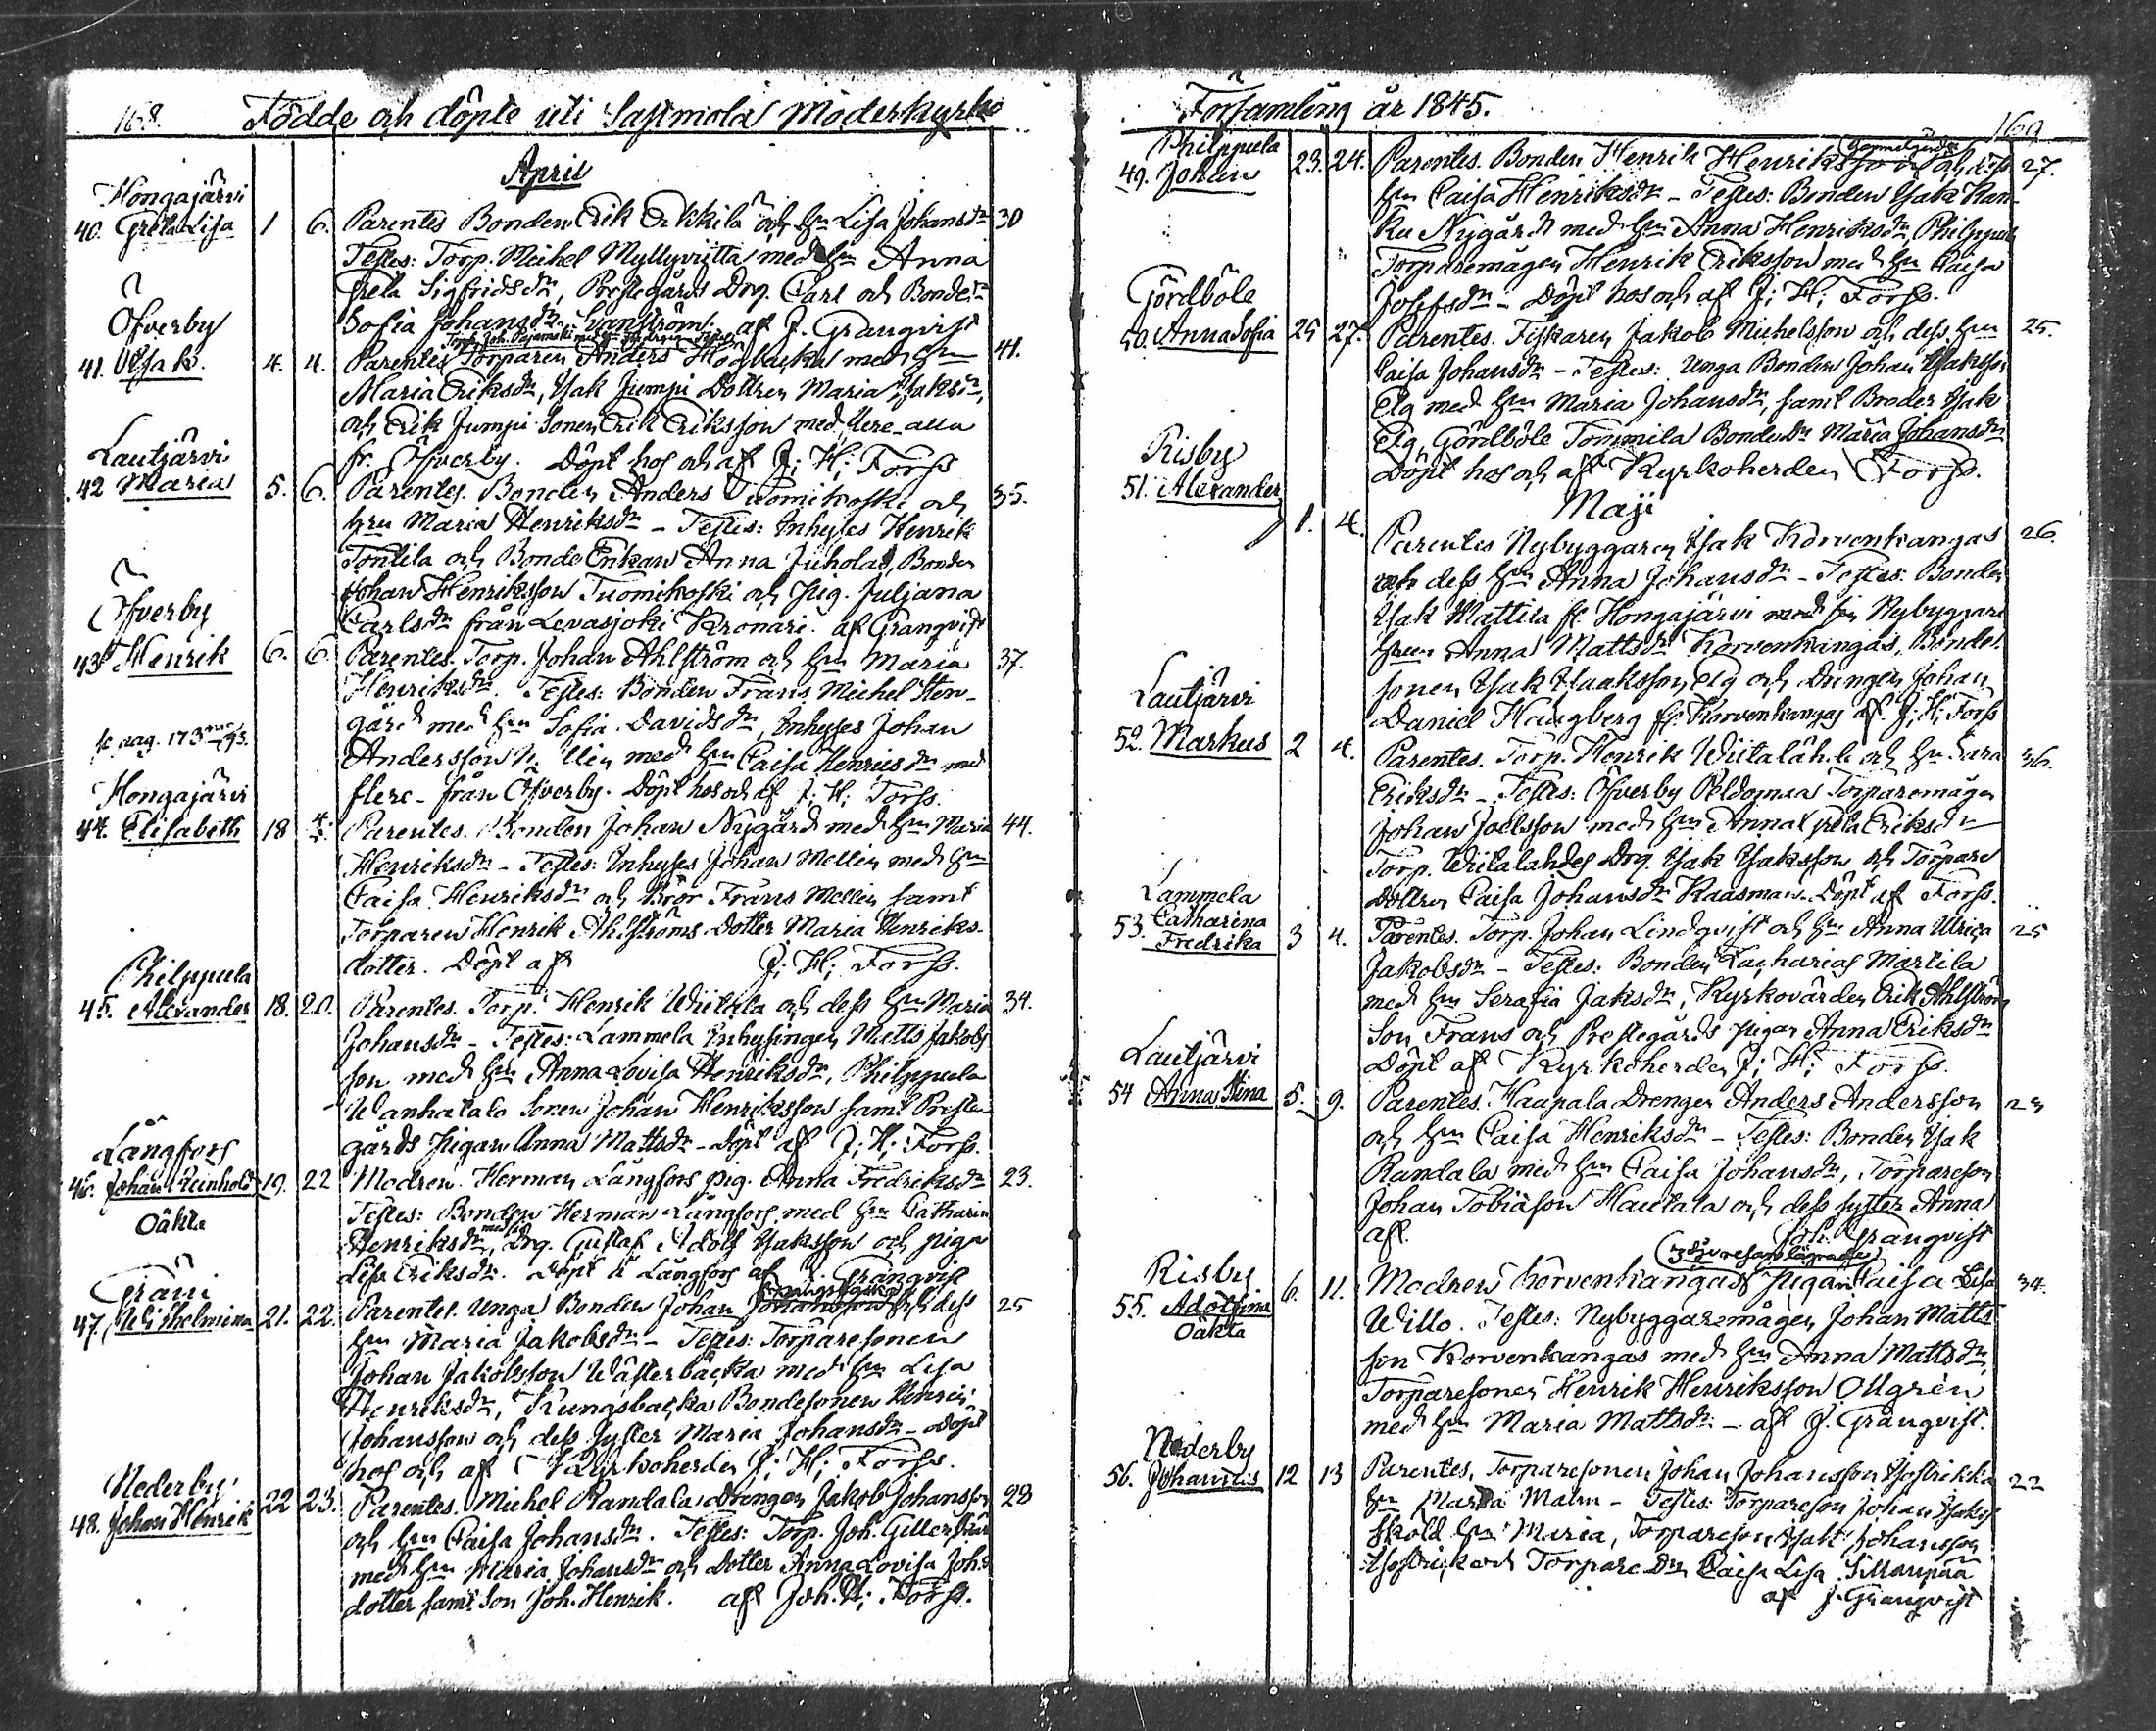 168. Födde och döpte uti Sastmola Moderkyrko
April
Hongajärvi
40. Greta Lisa 1 6. Parentes Bonden Erik Erkkilä och hu Lisa Johansdr 30
Testes: Torp. Michel Myllyviitta med hu Anna
Greta Sigfridsdr, Prestegårds Drg. Carl och Bondedr
Sofia Johansdr Svanström. af J. Granqvist
Öfverby
41. Isak. 4. 4. Parentes Torparen Anders Högbacka med hu 41.
Maria Eriksdr, Isak Jumpi Dottren Maria Isaksdr,
och Erik Jumpi Sonen Erik Eriksson med flere alla
fr. Öfverby. Döpt hos och af J; H; Forss
Lautjärvi
42 Maria 5. 6. Parentes. Bonden Anders Tuomikoski och 35.
hru Maria Henriksdr - Testes: Inhyses Henrik
Tontila och Bonde Enkan Anna Juhola, Bonden
Johan Henriksson Tuomikoski och pig. Juljana
Carlsdr från Levasjoki Kronari. af Granqvist
Öfverby
43 Henrik 6. 6. Parentes. Torp. Johan Ahlström och hu Maria 37.
Henriksdr. Testes: Bonden Frans Michel Sten-
gård med hu Sofia Davidsdr, Inhyses Johan
Andersson med hu Caisa Henricsdr med
flere - från Öfverby. Döpt hos och af J; H; Forss.
Hongajärvi
44. Elisabeth 18 Parentes. Bonden Johan Nygård med hu Maria 44.
Henriksdr - Testes: Inhyses Johan Mellin med hu
Caisa Henriksdr och Bror Frans Mellin samt
Torparen Henrik Ahlströms Dotter Maria Henriks-
dotter. Döpt af J; H; Forss.
Philppula
45. Alexander 18. 20. Parentes. Torp. Henrik Wiitala och dess hu Maria 34.
Johansdr - Testes: Lammela Inhysingen Matts Jakobs
son med hu Anna Lovisa Henriksdr, Philppula
Wanhatalo Sonen Johan Henriksson samt Preste-
gårds pigan Anna Mattsdr - Döpt af J; H; Forss.
Långfors
46. Johan Reinhold 19. 22 Modren. Herman Långfors pig. Anna Fredriksdr 23.
Oäkta
Testes: Bonden Herman Långfors med hu Catharin
Henriksdr, Drg. Gustaf Adolf Isaksson och piga
Lisa Eriksdr. Döpt i Långfors af Granqvist
Gräni
47. Wilhelmina 21. 22. Parentes. Unga Bonden Johan Johansson och dess 25
hu Maria Jakobsdr - Testes: Torparesonen
Johan Jakobsson Wästerbacka med hu Lisa
Henriksdr, Kungsbacka Bondesonen Henric
Johansson och dess syster Maria Johansdr - Döpt
hos och af Kyrkoherden J; H; Forss.
Nederby
48. Johan Henrik 22 23. Parentes. Michel Randala Drengen Jakob Johansson 28
och hu Caisa Johansdr. Testes: Torp. Joh.
med hu Maria Johansdr och dotter Anna Lovisa Johs
dotter samt Son Joh. Henrik. af Joh. H; Forss.
Församling år 1845. 169
Philppula
49. Johan 23. 24. Parentes. Bonden Henrik Henriksson och dess 27.
hu Caisa Henriksdr - Testes: Bonden Isak Han-
ku Nygård med hu Anna Henriksdr, Philppula
Torparemågen Henrik Eriksson med hu Caisa
Josefsdr - Döpt hos och af J; H; Forss.
Gördböle
50. Anna Sofia 25 27. Parentes. Fiskaren Jakob Michelsson och dess hu 25.
Caisa Johansdr - Testes: Unga Bonden Johan Isaksson
Elg med hu Maria Johansdr, samt Broder Isak
Elg, Gördböle Tommila Bondedr Maria Johansdr
Döpt hos och af Kyrkoherden Forss.
Maji
Risby
51. Alexander 1. 4. Parentes Nybyggaren Isak Korvenkangas 26.
och dess hu Anna Johansdr - Testes: Bonden
Isak Mattila fr. Hongajärvi med sin Nybyggare
hru Anna Mattsdr Korvenkangas, Bonde-
sonen Isak Isaksson Elg och Drengen Johan
Daniel Haugberg fr. Korvenkangas af. J; H; Forss
Lautjärvi
52. Markus 2 4. Parentes. Torp. Henrik Wiitalähde och hu Sara 36.
Eriksdr - Testes: Öfverby Peldomaa Torparemågen
Johan Joelsson med hu Anna Greta Eriksdr
Torp. Wiitalähdes Drg. Isak Isaksson och Torpare
Dottren Caisa Johansdr Kaasman. Döpt af Forss.
Lammela
53. Catharina Fredrika 3 4. Parentes. Torp. Johan Lindqvist och hu Anna Ulrica 25
Jakobsdr - Testes: Bonden Zacharias Martila
med hu Serafia Jaksdr, Kyrkovärden Erik Ahlström
Son Frans och Prestegårds pigan Anna Eriksdr
Döpt af Kyrkoherden J; H; Forss.
Lautjärvi
54 Anna Stina 5. 9. Parentes. Haapala Drengen Anders Andersson
och hu Caisa Henriksdr - Testes: Bonden Isak
Randala med hu Caisa Johansdr, Torpareson
Johan Tobiasson Hautala och dess syster Anna
af. Joh. Granqvist
Risby
55. Adolfina 6. 11. Modren Korvenkangas pigan Caisa Lisa 34.
Oäkta
Willo. Testes: Nybyggaremågen Johan Matts
son Korvenkangas med hu Anna Mattsdr
Torparesonen Henrik Henriksson Ollgrén
med hu Maria Mattsdr - af J. Granqvist.
Nederby
56. Johannes 12 13 Parentes, Torparesonen Johan Johansson 22
hu Maria Malm - Testes: Torpareson Johan Isaks
Sköld hu Maria, Torpareson Isak Johansson
och Torpare Dr Caisa Lisa Sillanpää
af J. Granqvist